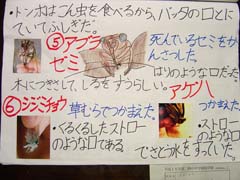 ・トンボはこん虫を食べるから、バッタの口とに
ていてふしぎだ。
⑤アブラ
ゼミ
死んでいるセミをかんさつした。
はりのような口だった。
木につきさして、しるをすうらしい。
⑥シジミチョウ
草むらでつかまえた。
・くるくるしたストロー
のような口である
アゲハ
つかまえた。
・ストロー
のような口
でさとう水をすっていた。